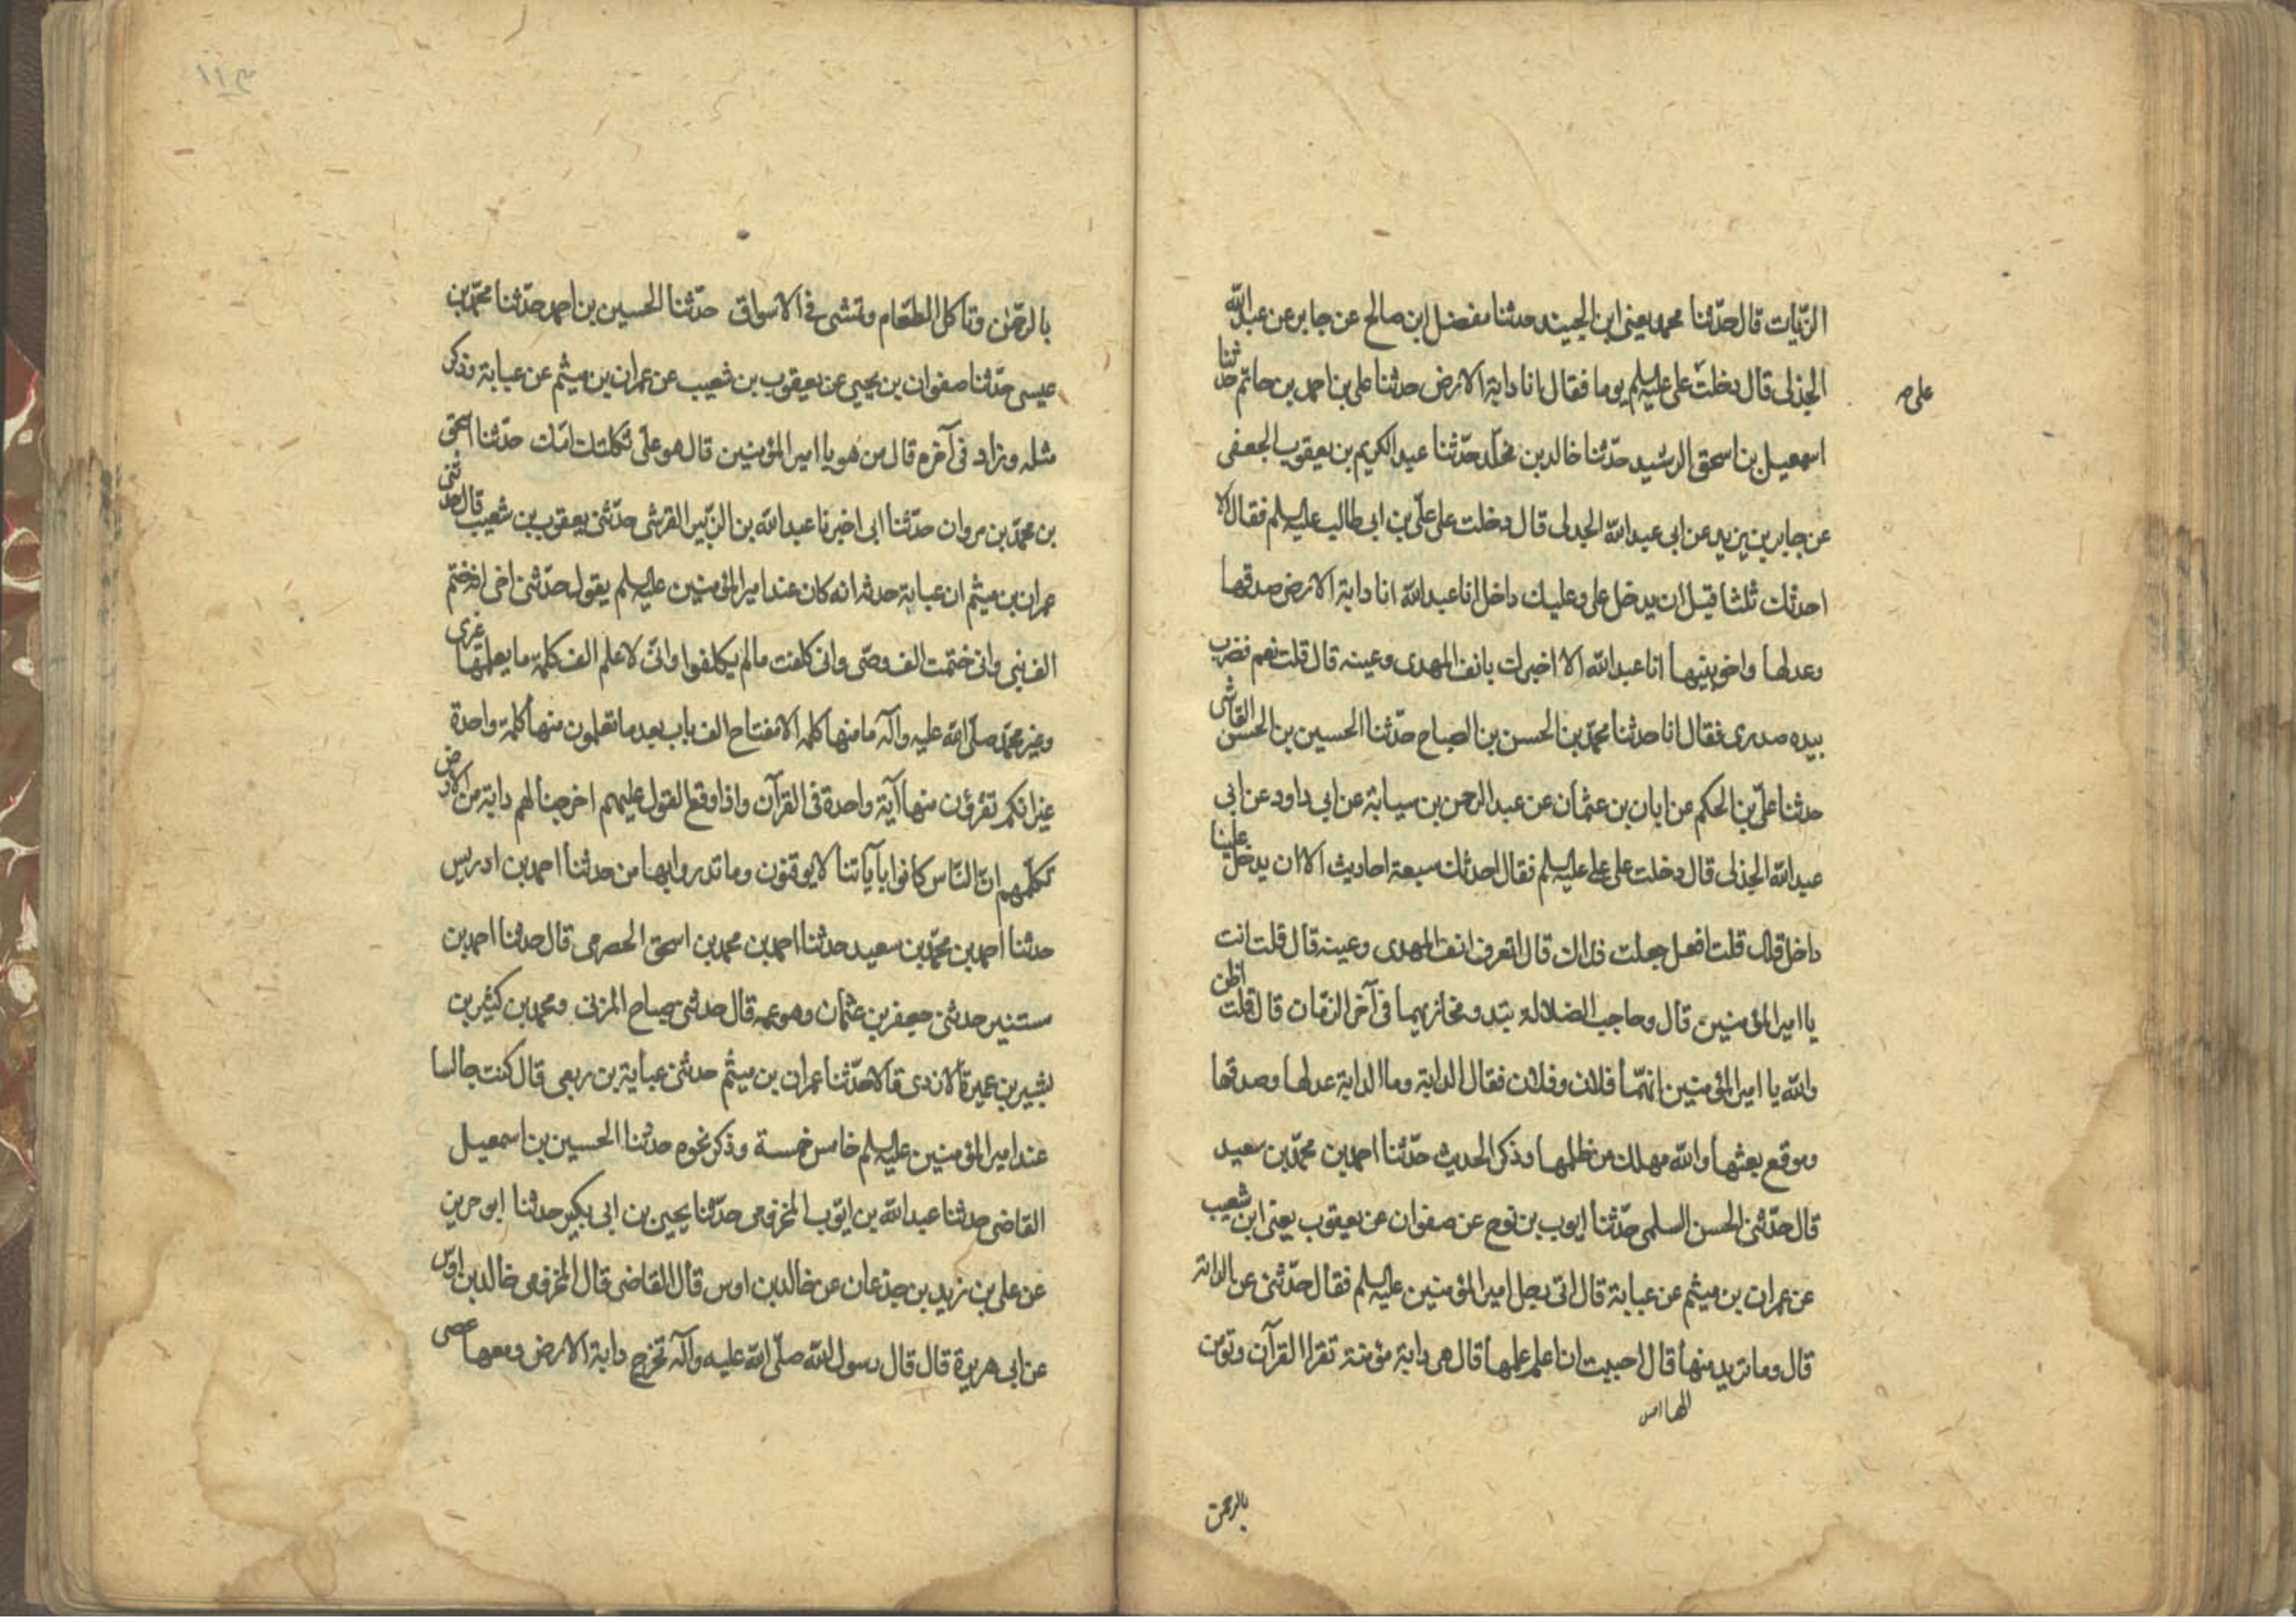 الزيات قال حدثنا محمد يعنى ابن الجنيد حدثنا مفضل ابن صالح عن جابر عن عبد الله
الجذلى قال دخلت على على عليه السلم يوما فقال انا دابة الارض حدثنا على بن احمد بن حاتم حدثنا
على صـ
اسمعيل بن اسحق الرشيد حدثنا خالد بن مخلد حدثنا عبد الكريم بن يعقوب الجعفى
عن جابر بن يزيد عن ابى عبد الله الجدلى قال دخلت على علىّ بن ابى طالب عليه السلم فقال الا
احدثك ثلثا قبل ان يدخل على وعليك داخل انا عبد الله انا دابة الارض صدقها
وعدلها واخو نبيها انا عبد الله الا اخبرك بانف المهدى وعينه قال قلت نعم فضرب
بيده صدرى فقال انا حدثنا محمّد بن الحسن بن الصباح حدّثنا الحسين بن الحسن القاشى
حدثنا علىّ بن الحكم عن ابان بن عثمان عن عبد الرحمن بن سيابة عن ابى داود عن ابى
عبد الله الجذلى قال دخلت على على عليه السلم فقال احدثك سبعة احاديث الا ان يدخل علينا
داخل قال قلت افعل جعلت فداك قال اتعرف انف المهدى وعينه قال قلت انت
يا امير المؤمنين قال وحاجب الضلالة تبدو مخازيهما فى آخر الزمان قال قلت اظن
والله يا امير المؤمنين انهما فلان وفلان فقال الدابة وما الدابة عدلها وصدقها
وموقع بعثها والله مهلك من ظلمها وذكر الحديث حدّثنا احمد بن محمّد بن سعيد
قال حدّثنى الحسن السلمى حدّثنا ايوب بن نوح عن صفوان عن يعقوب يعنى ابن شعيب
عن عمران بن ميثم عن عباية قال اتى رجل امير المؤمنين عليه السلم فقال حدّثنى عن الدابة
قال وما تريد منها قال احببت ان اعلم علمها قال هى دابة مؤمنة تقرا القرآن وتؤمن
بالرحمن
بالرحمٰن وتاكل الطعام وتمشى فى الاسواق حدّثنا الحسين بن احمد حدّثنا محمّد بن
عيسى حدّثنا صفوان بن يحيى عن يعقوب بن شعيب عن عمران بن ميثم عن عباية وذكر
مثله وزاد فى آخره قال من هو يا امير المؤمنين قال هو علىّ ثكلتك امّك حدّثنا اسحق
بن محمّد بن مروان حدّثنا ابى اخبرنا عبد الله بن الزبير القرشى حدّثنى يعقوب بن شعيب قال حدثنى
عمران بن ميثم ان عباية حدثه انه كان عند امير المؤمنين عليه السلم يقول حدّثنى اخى انه ختم
الف نبى وانى ختمت الف وصّى وانى كلفت مالم يكلفوا وانّى لاعلم الف كلمة ما يعلمها غيرى
وغير محمّد صلّى الله عليه وآله ما منها كلمة الا مفتاح الف باب بعد ما تعلمون منها كلمة واحدة
غير انكم تقرؤن منها آية واحدة فى القرآن واذا وقع القول عليهم اخرجنا لهم دابة من الارض
تكلّمهم انّ النّاس كانوا بآياتنا لا يوقنون وما تدروا بها من حدثنا احمد بن ادريس
حدثنا احمد بن محمّد بن سعيد حدثنا احمد بن محمد بن اسحق الحضرمى قال حدثنا احمد بن
مستنير حدثنى جعفر بن عثمان وهو عمه قال حدثنى صباح المزنى ومحمد بن كثير بن
بشير بن عميرة الازدى قالا حدّثنا عمران بن ميثم حدثنى عباية بن ربعى قال كنت جالسا
عند امير المؤمنين عليه السلم خامس خمسة وذكر نحوه حدثنا الحسين بن اسمعيل
القاضى حدثنا عبد الله بن ايّوب المخزومى حدّثنا يحيى بن ابى بكير حدثنا ابو حريز
عن على بن زيد بن جذعان عن خالد بن اوس قال القاضى قال المخزومى خالد بن اوس
عن ابى هريرة قال قال رسول الله صلّى الله عليه وآله تخرج دابة الارض ومعها عصى